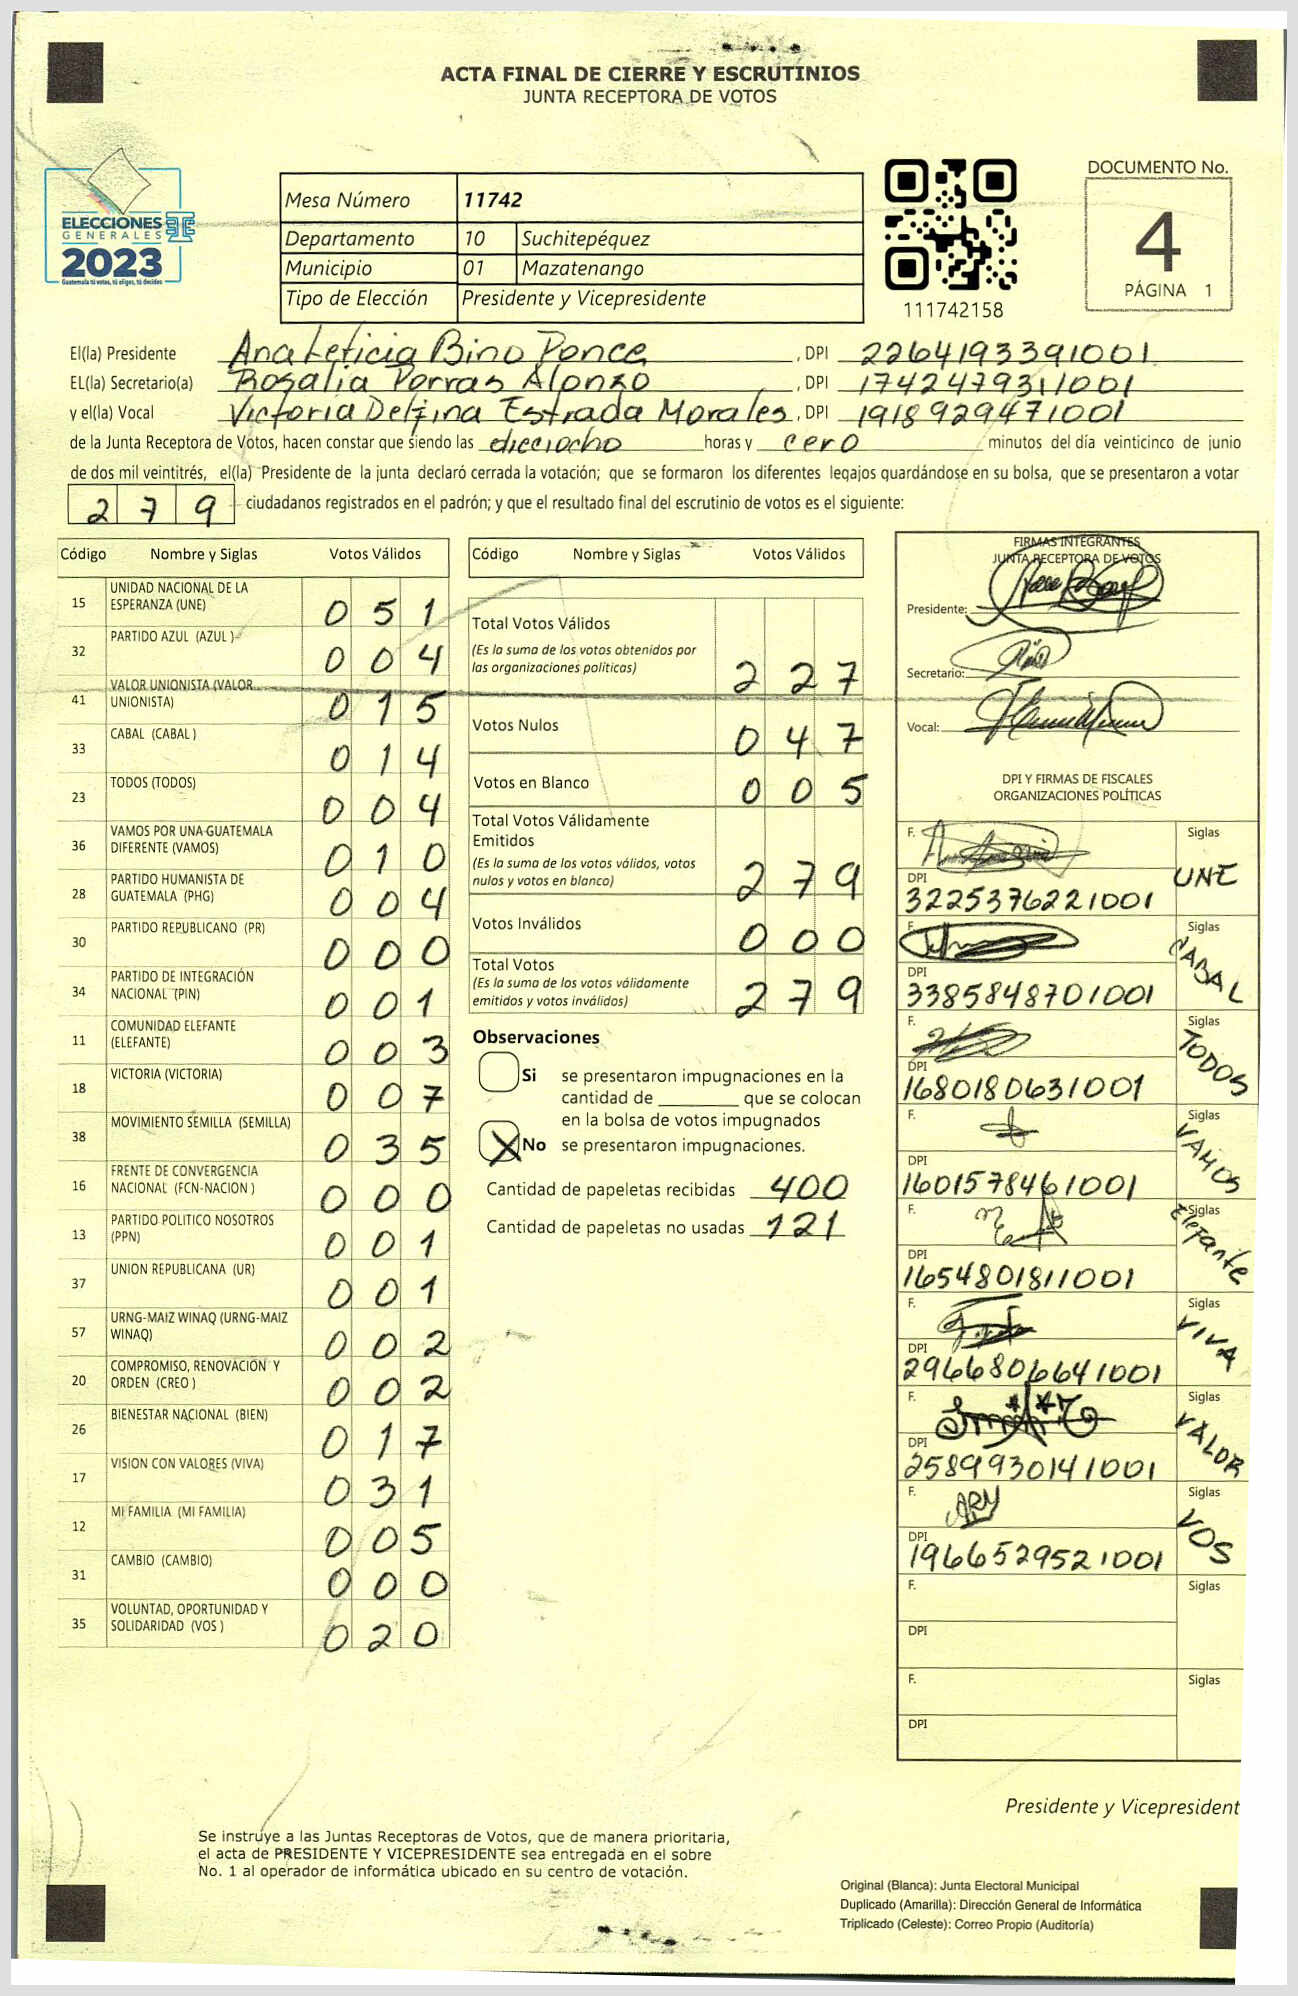 ACTA FINAL DE CIERRE Y ESCRUTINIOS
JUNTA RECEPTORA DE VOTOS
ELECCIONES
GENERALES
2023
Guatemala tú votas, tú eliges, tú decides
Mesa Número 11742
Departamento 10 Suchitepéquez
Municipio 01 Mazatenango
Tipo de Elección Presidente y Vicepresidente
111742158
DOCUMENTO No.
4
PÁGINA 1
El(la) Presidente Ana Leticia Bino Ponce, DPI 2264193391001
EL(la) Secretario(a) Rosalia Porras Alonzo, DPI 1742479311001
y el(la) Vocal Victoria Delfina Estrada Morales, DPI 1918929471001
de la Junta Receptora de Votos, hacen constar que siendo las dieciocho horas y cero minutos del día veinticinco de junio
de dos mil veintitrés, el(la) Presidente de la junta declaró cerrada la votación; que se formaron los diferentes legajos guardándose en su bolsa, que se presentaron a votar
279 ciudadanos registrados en el padrón; y que el resultado final del escrutinio de votos es el siguiente:
Código Nombre y Siglas Votos Válidos
15 UNIDAD NACIONAL DE LA ESPERANZA (UNE) 051
32 PARTIDO AZUL (AZUL ) 004
41 VALOR UNIONISTA (VALOR UNIONISTA) 015
33 CABAL (CABAL ) 014
23 TODOS (TODOS) 004
36 VAMOS POR UNA GUATEMALA DIFERENTE (VAMOS) 010
28 PARTIDO HUMANISTA DE GUATEMALA (PHG) 004
30 PARTIDO REPUBLICANO (PR) 000
34 PARTIDO DE INTEGRACIÓN NACIONAL (PIN) 001
11 COMUNIDAD ELEFANTE (ELEFANTE) 003
18 VICTORIA (VICTORIA) 007
38 MOVIMIENTO SEMILLA (SEMILLA) 035
16 FRENTE DE CONVERGENCIA NACIONAL (FCN-NACION ) 000
13 PARTIDO POLITICO NOSOTROS (PPN) 001
37 UNION REPUBLICANA (UR) 001
57 URNG-MAIZ WINAQ (URNG-MAIZ WINAQ) 002
20 COMPROMISO, RENOVACIÓN Y ORDEN (CREO ) 002
26 BIENESTAR NACIONAL (BIEN) 017
17 VISION CON VALORES (VIVA) 031
12 MI FAMILIA (MI FAMILIA) 005
31 CAMBIO (CAMBIO) 000
35 VOLUNTAD, OPORTUNIDAD Y SOLIDARIDAD (VOS ) 020
Código Nombre y Siglas Votos Válidos
Total Votos Válidos
(Es la suma de los votos obtenidos por
las organizaciones políticas) 227
Votos Nulos 047
Votos en Blanco 005
Total Votos Válidamente
Emitidos
(Es la suma de los votos válidos, votos
nulos y votos en blanco) 279
Votos Inválidos 000
Total Votos
(Es la suma de los votos válidamente
emitidos y votos inválidos) 279
Observaciones
Si se presentaron impugnaciones en la
cantidad de ________ que se colocan
en la bolsa de votos impugnados
X No se presentaron impugnaciones.
Cantidad de papeletas recibidas 400
Cantidad de papeletas no usadas 121
FIRMAS INTEGRANTES
JUNTA RECEPTORA DE VOTOS
Presidente:
Secretario:
Vocal:
DPI Y FIRMAS DE FISCALES
ORGANIZACIONES POLÍTICAS
F. Siglas UNE
DPI 3225376221001
F. Siglas CABAL
DPI 3385848701001
F. Siglas TODOS
DPI 1680180631001
F. Siglas VAMOS
DPI 1601578461001
F. Siglas Elefante
DPI 1654801811001
F. Siglas VIVA
DPI 2966806641001
F. Siglas VALOR
DPI 2589930141001
F. Siglas VOS
DPI 1966529521001
F. Siglas
DPI
F. Siglas
DPI
Presidente y Vicepresident
Se instruye a las Juntas Receptoras de Votos, que de manera prioritaria,
el acta de PRESIDENTE Y VICEPRESIDENTE sea entregada en el sobre
No. 1 al operador de informática ubicado en su centro de votación.
Original (Blanca): Junta Electoral Municipal
Duplicado (Amarilla): Dirección General de Informática
Triplicado (Celeste): Correo Propio (Auditoría)